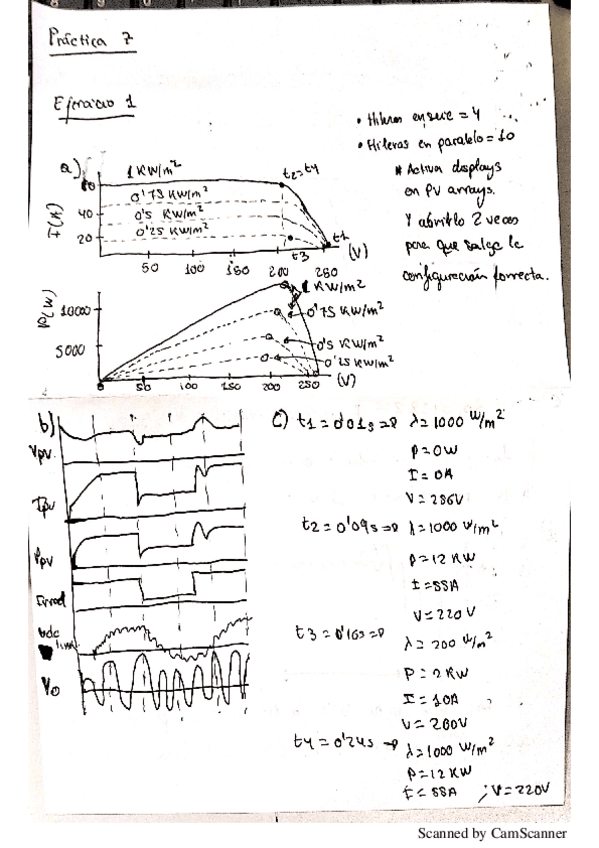 Práctica 7
Ejercicio 1
• Hileras en serie = 4
• Hileras en paralelo = 10
* Activa displays
en PV arrays.
Y abrirlo 2 veces
para que salga la
configuración correcta.
a)
1 KW/m²
t2=t4
0'75 KW/m²
0'5 KW/m²
0'25 KW/m²
I(A)
40
20
t1
t3
(V)
50 100 150 200 250
P(W)
10000
5000
1 KW/m²
0'75 KW/m²
0'5 KW/m²
0'25 KW/m²
0 50 100 150 200 250 (V)
b)
Vpv
Ipv
Ppv
Irrad
Vdc
link
Vo
c) t1 = 0'01s => λ = 1000 W/m²
P = 0W
I = 0A
V = 286V
t2 = 0'09s => λ = 1000 W/m²
P = 12 KW
I = 55A
V = 220 V
t3 = 0'16s => λ = 200 W/m²
P = 2 KW
I = 10A
V = 200V
t4 = 0'24s -> λ = 1000 W/m²
P = 12 KW
I = 55A ; V = 220V
Scanned by CamScanner